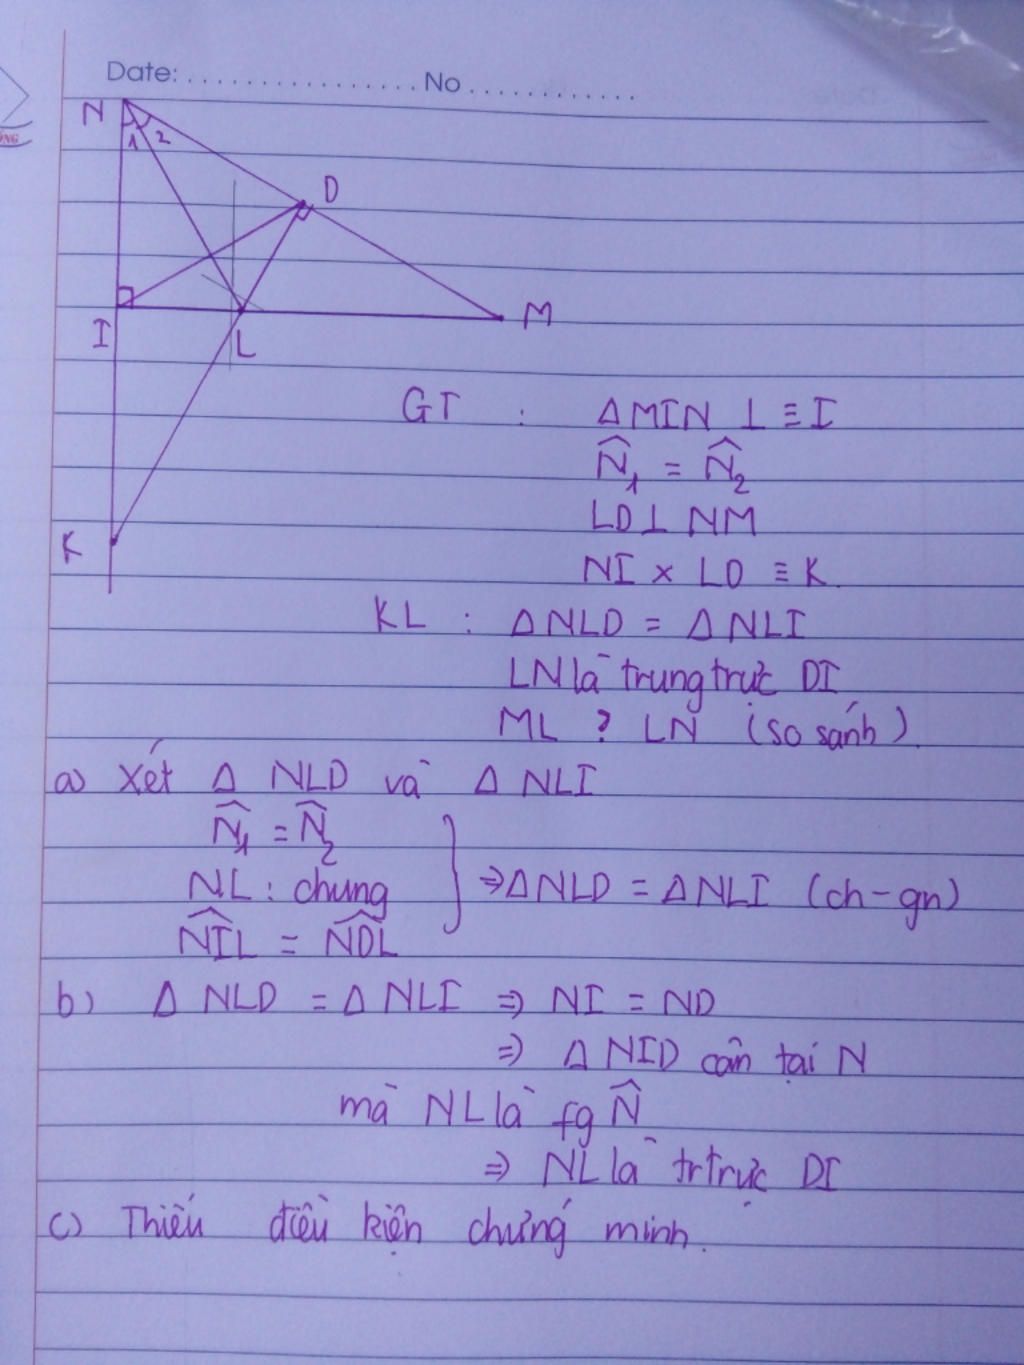 Date: ................ No ............
N
1 2
D
I
L
M
K
GT : Δ MIN ⊥ ≡ I
N̂₁ = N̂₂
LD ⊥ NM
NI × LD ≡ K.
KL : Δ NLD = Δ NLI
LN là trung trực DI
ML ? LN (so sánh).
a) Xét Δ NLD và Δ NLI
N̂₁ = N̂₂
NL : chung
⇒ Δ NLD = Δ NLI (ch - gn)
NIL = NDL
b) Δ NLD = Δ NLI ⇒ NI = ND
⇒ Δ NID cân tại N
mà NL là fg N̂
⇒ NL là tr trực DI
c) Thiếu điều kiện chứng minh.